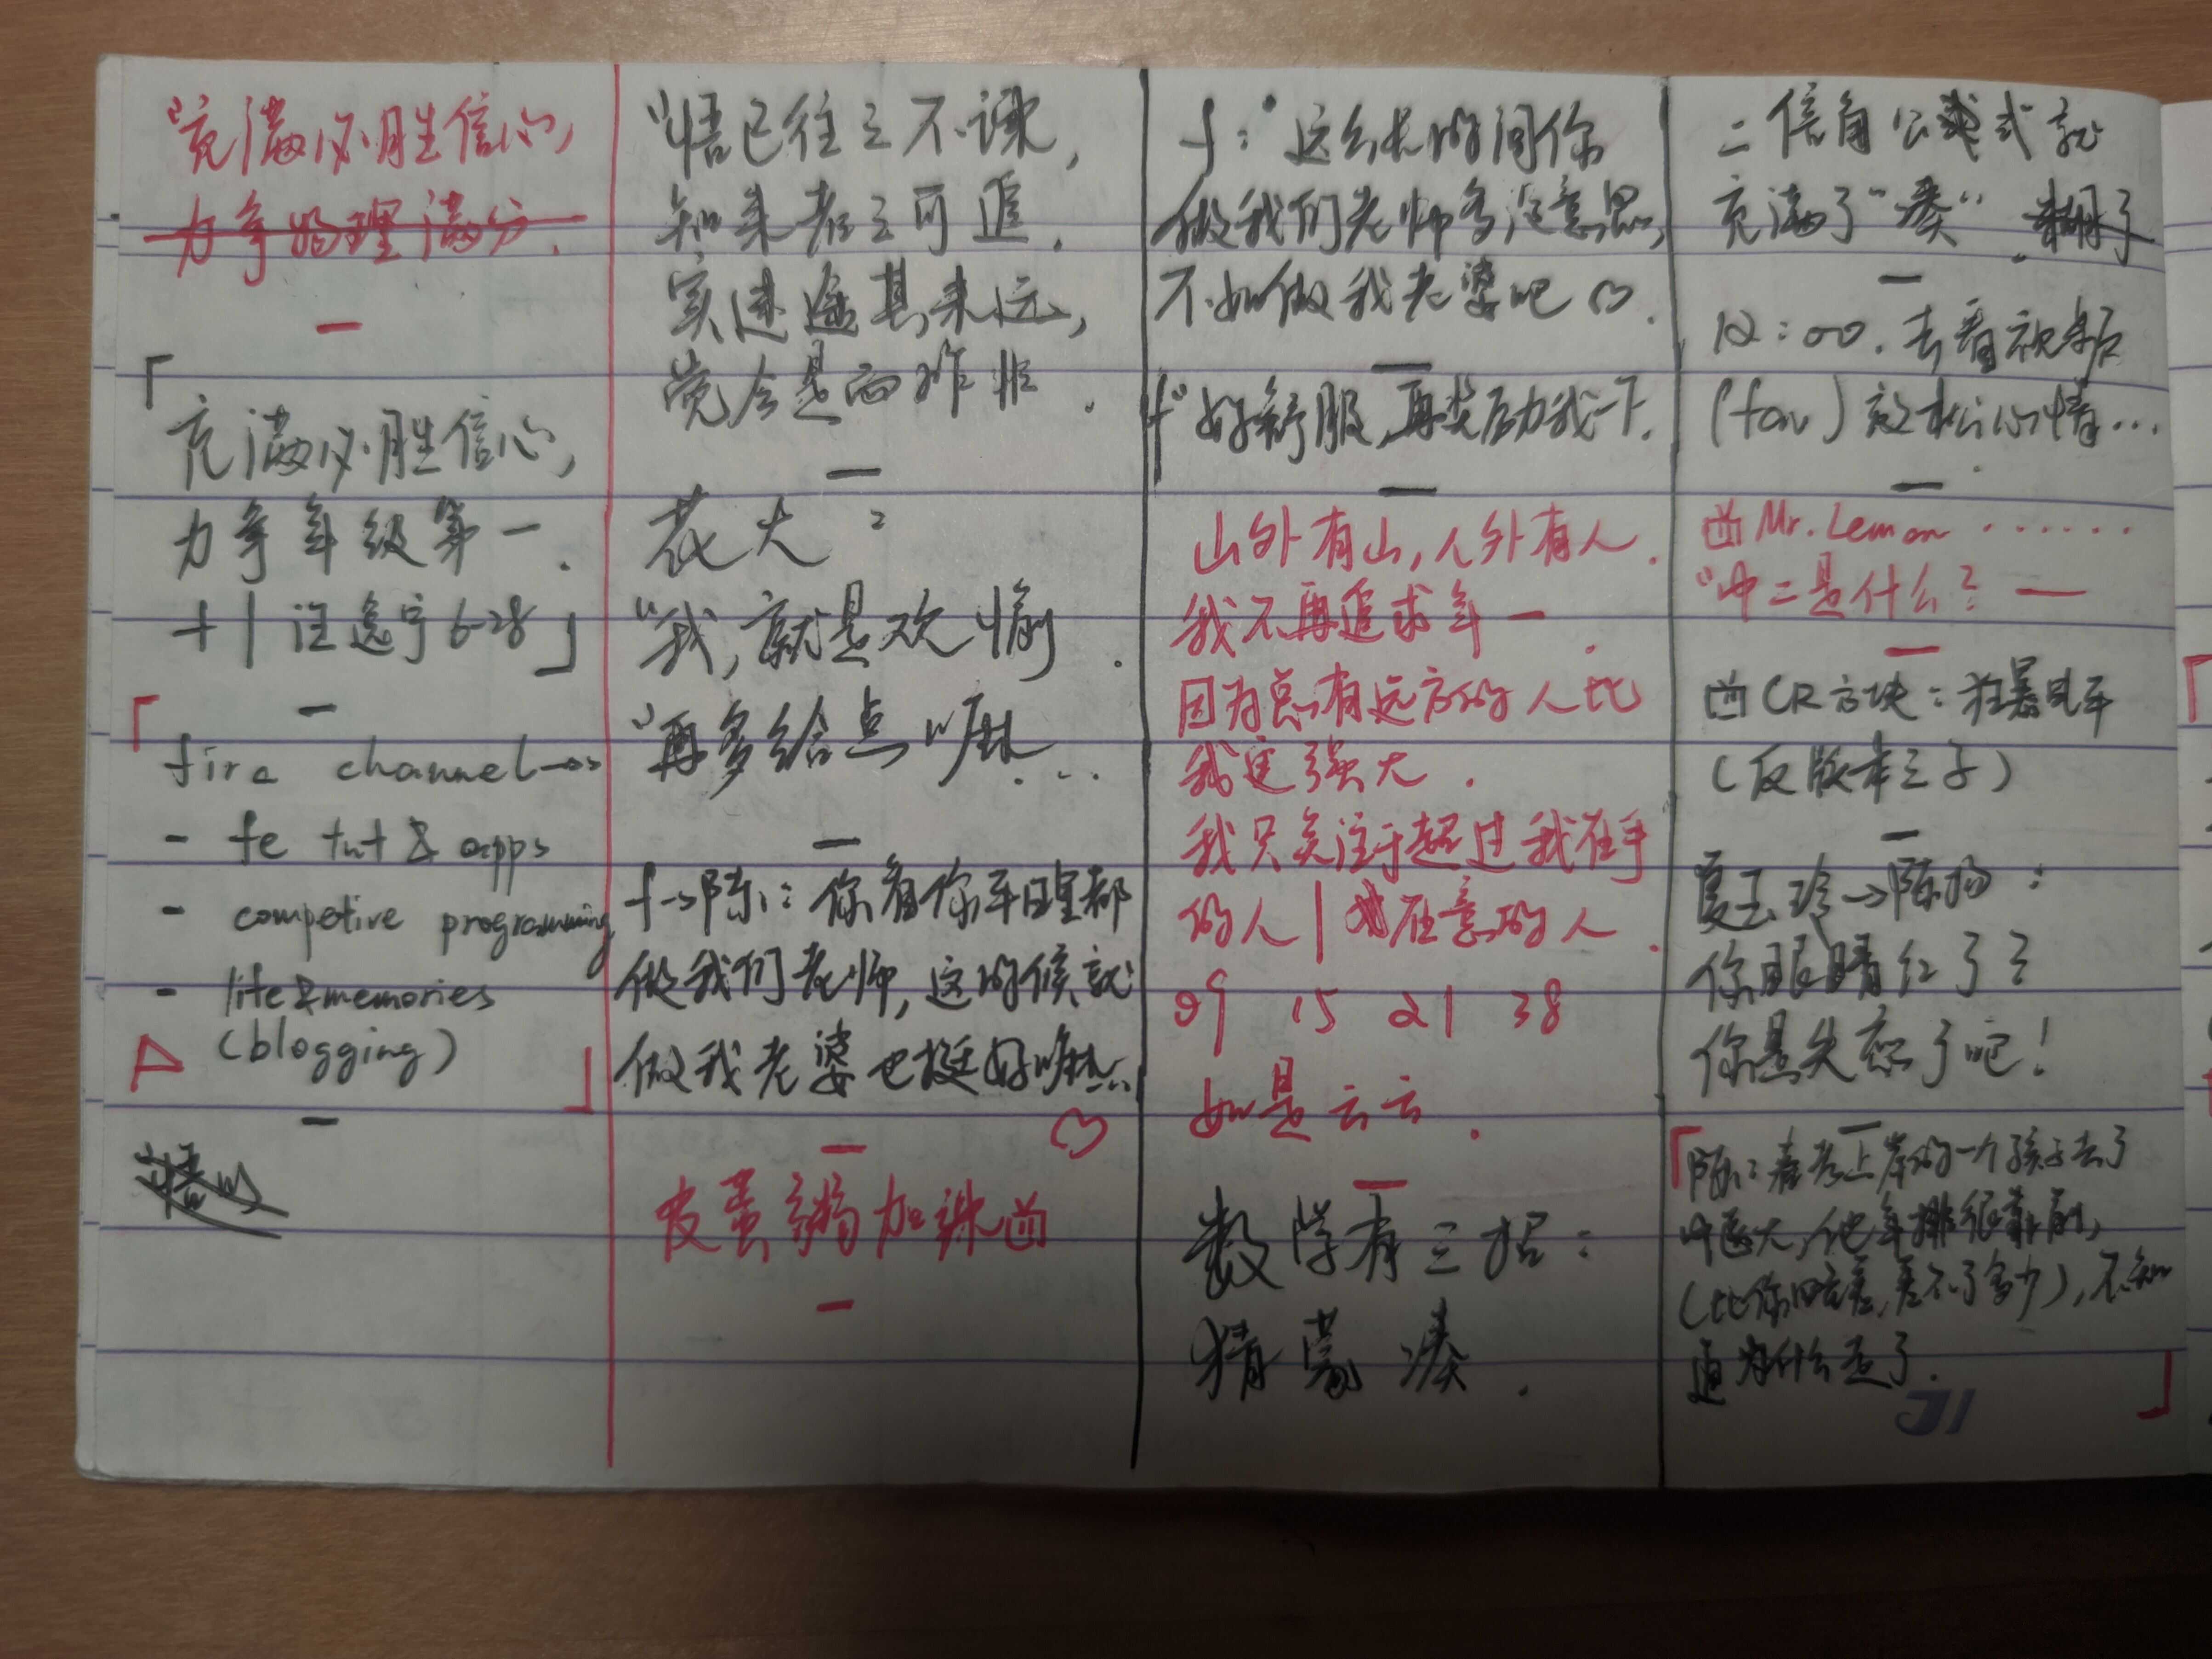 “充满必胜信心,
力争物理满分.
「
充满必胜信心,
力争年级第一.
十|汪逸宁6-28」
「
fire channel→
- fe tnt & apps
- competive programming
- life&memories
(blogging)
」
“悟已往之不谏,
知来者之可追.
实迷途其未远,
觉今是而昨非.
花火:
“我,就是欢愉.
“再多给点嘛...
f→陈:你看你平日里都
做我们老师,这时候就
做我老婆也挺好嘛
皮蛋粥加辣
f:“这么长时间你
做我们老师多没意思,
不如做我老婆吧♡.
f“好舒服,再奖励我一下.
山外有山,人外有人.
我不再追求年一.
因为总有远方的人比
我更强大.
我只关注于超过我在乎
的人|我在意的人.
09 15 21 38
如是云云.
数学有三招:
猜 蒙 凑.
二倍角公式就
充满了“凑”.
12:00.去看
(fav)放松心情...
Mr. Lemon ......
“中二是什么?—
CR方块:狂暴
(反版本之子)
夏玉玲→陈扬:
你眼睛红了?
你是失恋了吧!
「陈:春考上岸的一个孩子去了
中医大,他年排很靠前,
(比你略差,差不了多少),不知
道为什么走了.
」
31